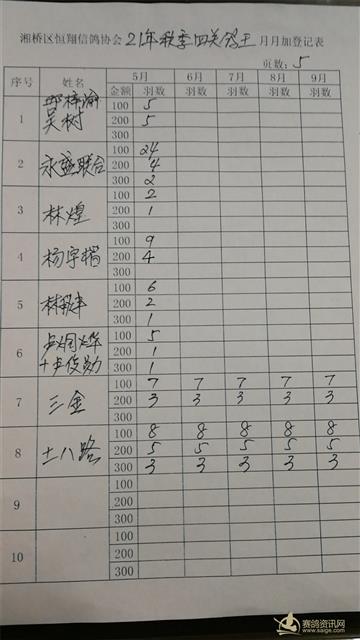 湘桥区恒翔信鸽协会21年秋季四关鸽王月月加登记表
页数:5
序号 姓名 5月 6月 7月 8月 9月
金额 羽数 羽数 羽数 羽数 羽数
1 吴树 100 5
200 5
300
2 永盛联合 100 24
200 4
300 2
3 林煌 100 2
200 1
300
4 杨宇 100 9
200 4
300
5 100 6
200 2
300 1
6 100 5
200 1
300 1
7 三金 100 7 7 7 7 7
200 3 3 3 3 3
300
8 十八路 100 8 8 8 8 8
200 5 5 5 5 5
300 3 3 3 3 3
9 100
200
300
10 100
200
300
赛鸽资讯网
www.saige.com